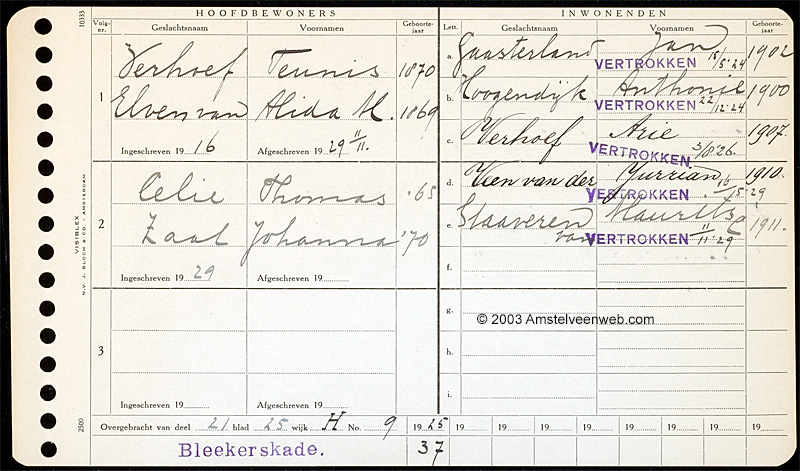 10333
HOOFDBEWONERS
INWONENDEN
Volg-nr.
Geslachtsnaam
Voornamen
Geboorte-jaar
Lett.
Geslachtsnaam
Voornamen
Geboorte-jaar
1
Verhoef Teunis 1870
Elven van Alida M. 1869
Ingeschreven 19 16 Afgeschreven 19 29 11/11.
2
Celie Thomas '65
Zaal Johanna '70
Ingeschreven 19 29 Afgeschreven 19
3
Ingeschreven 19 Afgeschreven 19
a. Gaasterland Jan 1902
VERTROKKEN 15/5 '24
b. Hoogendijk Anthonie 1900
VERTROKKEN 22/12 '24
c. Verhoef Arie 1907.
VERTROKKEN 3/8 '26.
d. Veen van der Jurrian 1910.
VERTROKKEN 29
e. Staaveren van Maurits 1911.
VERTROKKEN 11/11 '29
f.
g.
© 2003 Amstelveenweb.com
h.
i.
VISIBLEX
N.V. J. BLOCH & CO. - AMSTERDAM
2500
Overgebracht van deel 21 blad 25 wijk H No. 9 19 25 19 19 19 19 19 19 19 19
Bleekerskade. 37